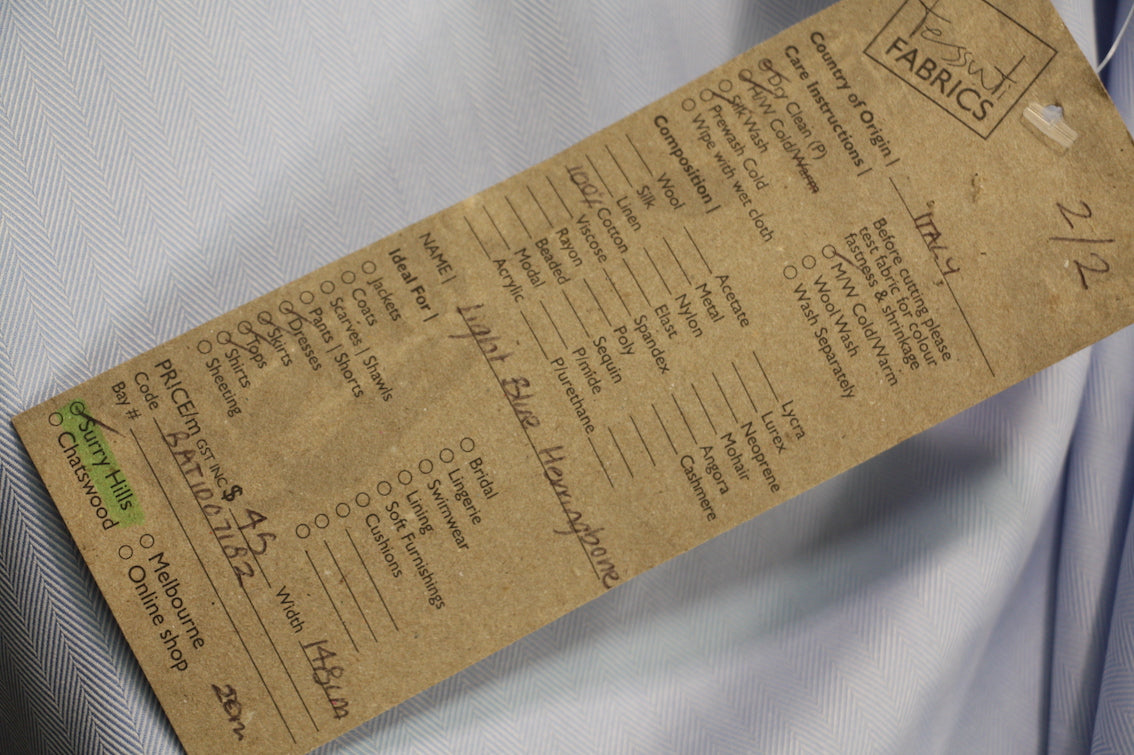 Tessuti
FABRICS
2/2
Country of Origin | "ITALY"
Care Instructions |
Dry Clean (P)
H/W Cold/Warm
Silk Wash
Prewash Cold
Wipe with wet cloth
Before cutting please
test fabric for colour
fastness & shrinkage
M/W Cold/Warm
Wool Wash
Wash Separately
Composition |
Wool
Silk
Linen
100% Cotton
Viscose
Rayon
Beaded
Modal
Acrylic
Acetate
Metal
Nylon
Elast
Spandex
Poly
Sequin
P/mide
P/urethane
Lycra
Lurex
Neoprene
Mohair
Angora
Cashmere
NAME | Light Blue Herringbone
Ideal For |
Jackets
Coats
Scarves | Shawls
Pants | Shorts
Dresses
Skirts
Tops
Shirts
Sheeting
Bridal
Lingerie
Swimwear
Lining
Soft Furnishings
Cushions
PRICE/m GST INC $ 45 Width 148cm
Code BAT1007182
Bay # 20m
Surry Hills
Chatswood
Melbourne
Online shop